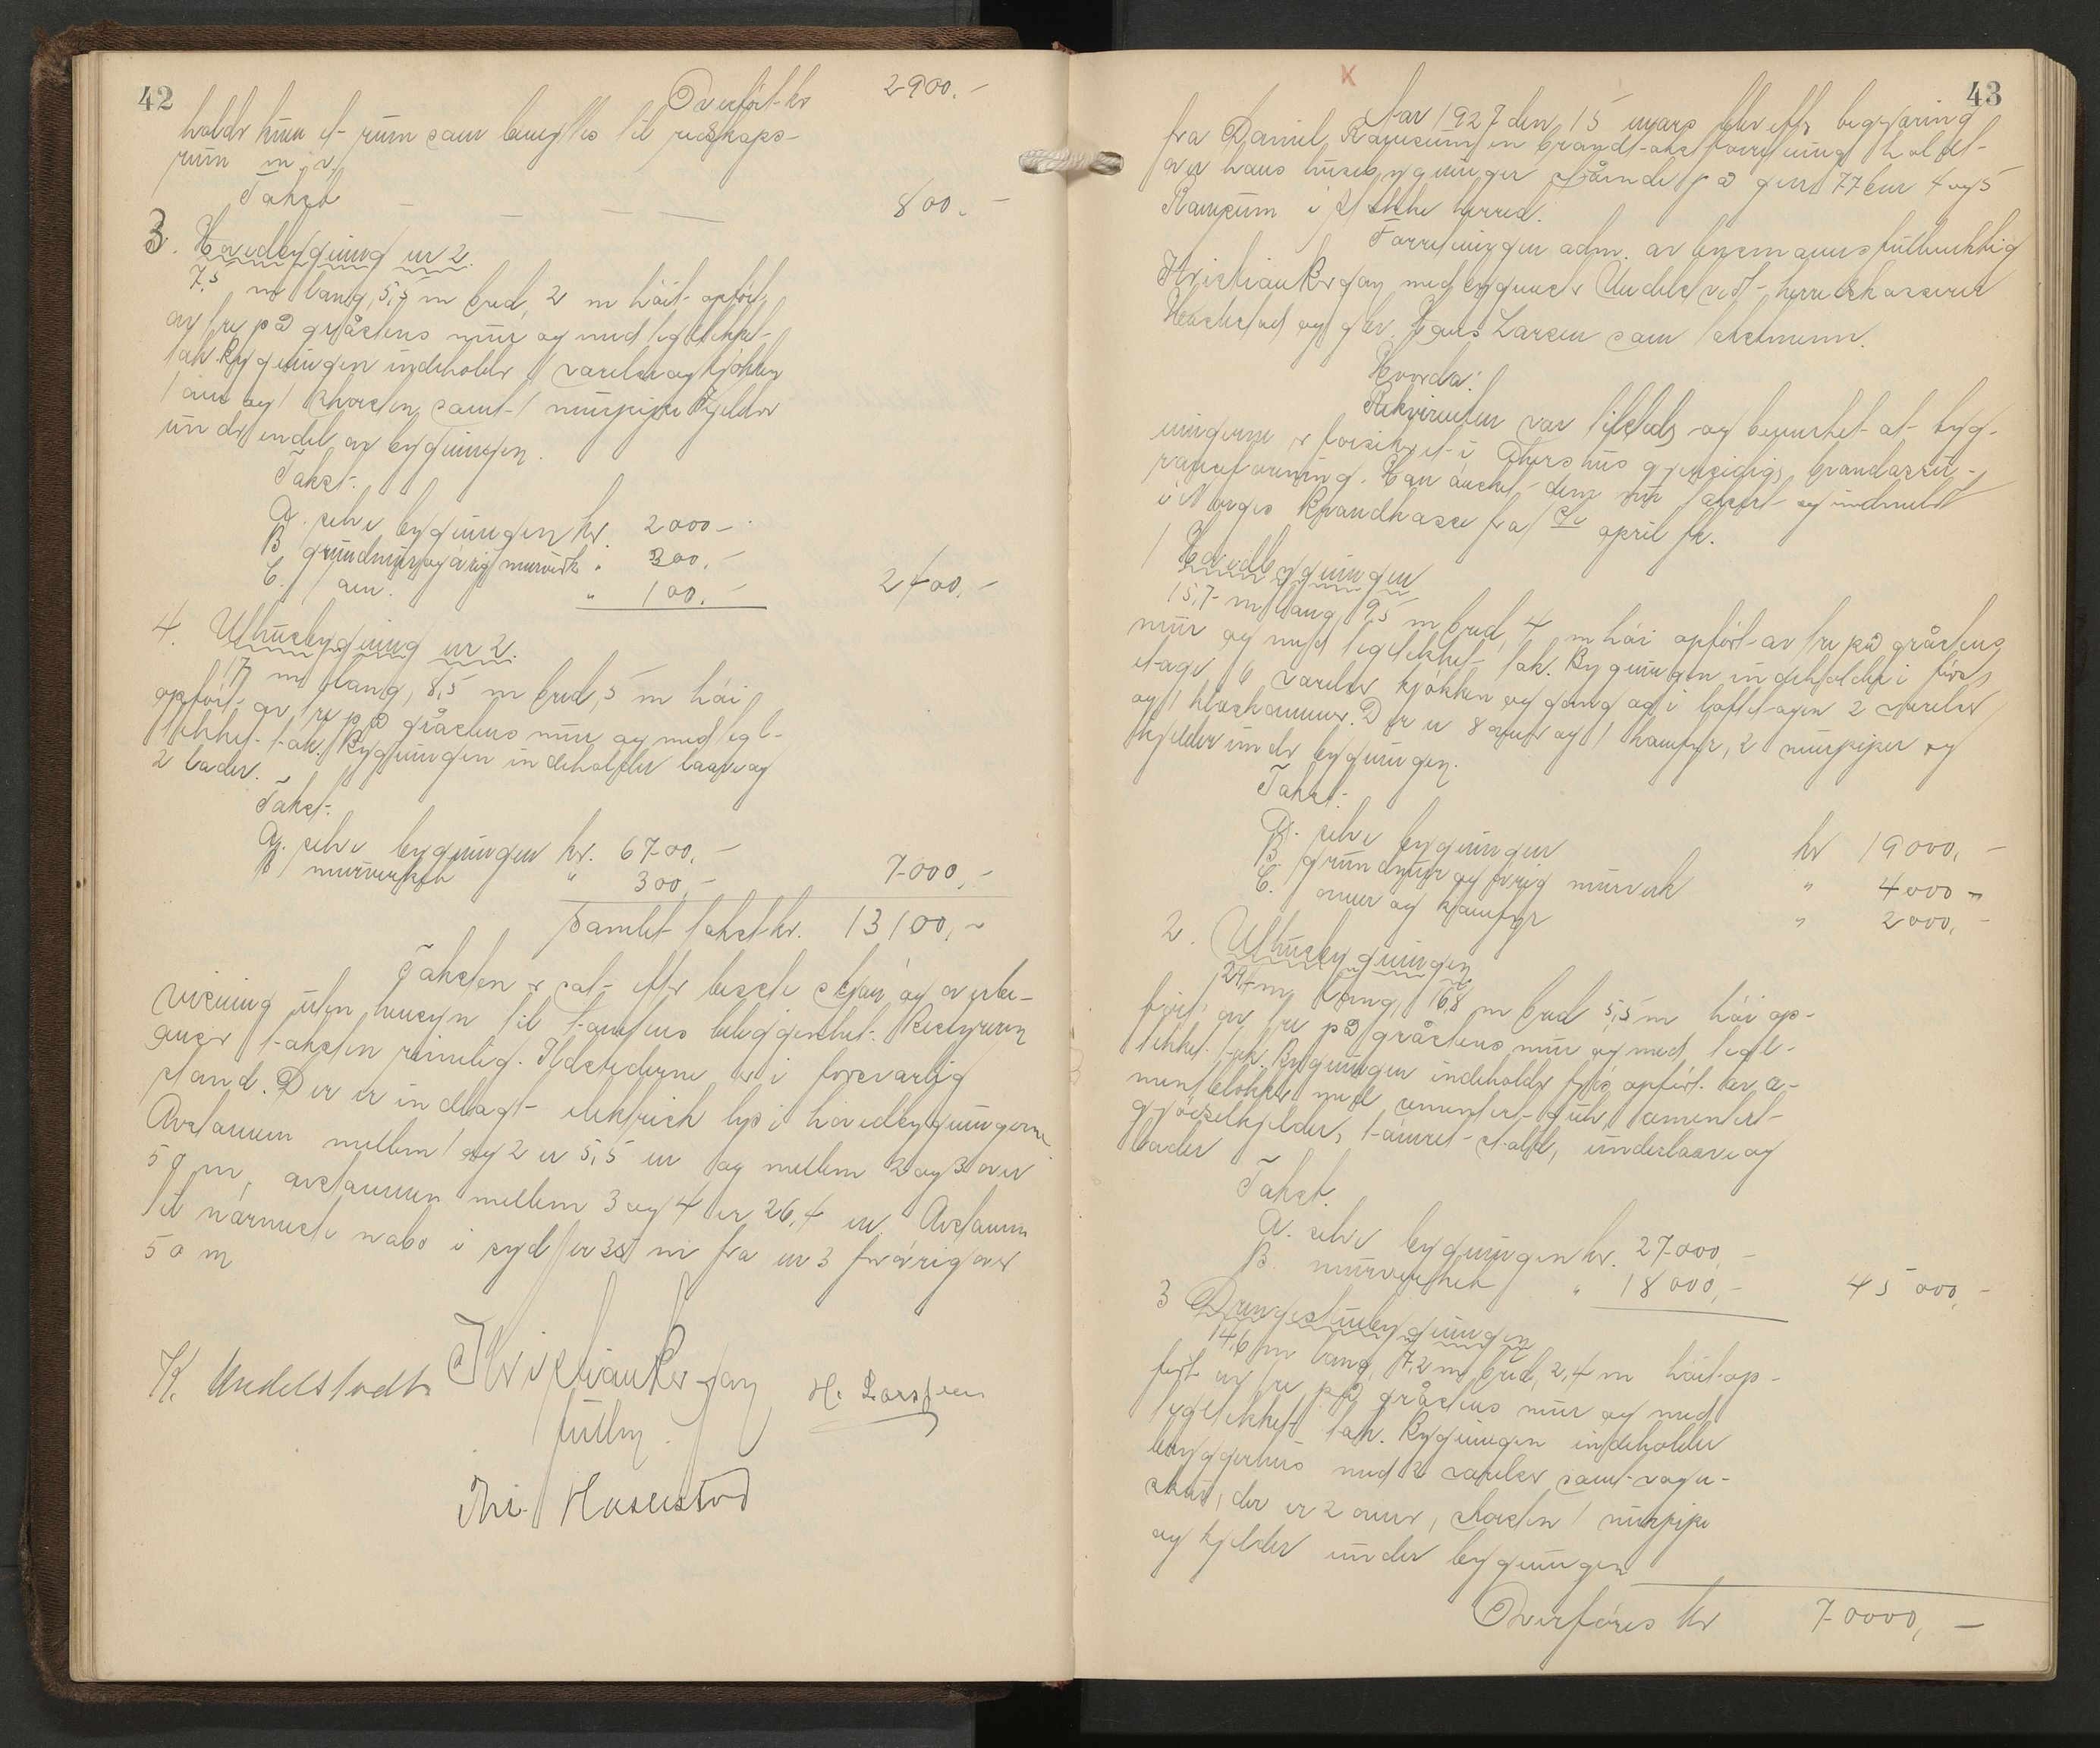 42
Overført kr 2900.-
holdr kun et rum som benyttes til redskaps-
rum m. v.
Takst — — — — 800.-
3. Hovedbygning nr 2.
7,5 m lang, 5,5 m bred, 2 m höit opfört
av tre på gråstens mur og med teglstekket
tak. Bygningen indeholdr 1 værelse og kjökken
1 ovn og 1 skorsten, samt 1 murpipe. Kjelder
undr endel av bygningen.
Takst:
A. selve bygningen kr. 2000-
B grundmur og övrig murverk " 300.-
C. 1 ovn. " 100.- 2400.-
4. Uthusbygning nr 2.
17 m lang, 8,5 m bred, 5 m höi
opfört av tre på gråstens mur og med tegl-
tekket tak. Bygningen indeholder laave og
2 lader.
Takst:
A. selve bygningen kr. 6700.-
B murverket " 300,- 7000,-
Samlet takst kr. 13100,-
Taksten er sat eftr beste skjön og overbe-
visning uten hensyn til tomtens beliggenhet. Bestyreren
anser taksten rimelig. Ildstederne er i forsvarlig
stand. Der er indlagt elektrisk lys i hovedbygningerne
Avstanden mellem 1 og 2 er 5,5 m og mellem 2 og 3 over
50 m, avstanden mellem 3 og 4 er 26,4 m. Avstanden
til nærmeste nabo i syd er 35 m fra nr 3 forövrig over
50 m
K. Undelstvedt Kristian Bergan H. Larssen
fullm.
Chr. Haslestad
43
X
Aar 1927 den 15 mars blev eftr begjæring
fra Daniel Ramsum en brandtakstforretning holdt
over hans husebygninger staaende på gnr 77 bnr 4 og 5
Ramsum i Stokke herred.
Forretningen adm. av lensmannsfullmektig
Kristian Bergan med bygmester Undelstvedt, herredskasserer
Haslestad og gbr. Hans Larsen som takstmenn.
Hvorda:
Rekvirenten var tilstede og bemerket at byg-
ningerne er forsikret i gjensidige brandassu-
ranseforening. Han önsket dem nu taksert og indmeldt
i Norges Brandkasse fra 1ste april fk.
1 Hovedbygningen
15,7 m lang, 9,5 m bred, 4 m höi opfört av tre på gråstens
mur og med tegltekket tak. Bygningen indeholder i förste
etage 6 værelser kjökken og gang og i loftetagen 2 værelser
og 1 klæskammer. Der er 8 ovner og 1 komfyr, 2 murpiper og
kjelder undr bygningen.
Takst:
A. selve bygningen kr 19000,-
B. grundmur og övrig murverk " 4000-
C. ovner og komfyr " 2000,-
2. Uthusbygningen
29,4 m lang, 16,8 m bred 5,5 m höi op-
fört av tre på gråstens mur og med tegl-
tekket tak. Bygningen indeholdr fjös opfört av ce-
mentblokker med cementert gulv, cementert
gjödselkjelder, tömret stald, underlaave og
lader
Takst.
A. selve bygningen kr. 27000,-
B. murverket " 18000,- 45000,-
3 Drengestubygningen
14,6 m lang, 7,2 m bred, 2,4 m höit op-
fört av tre på gråstens mur og med
tegltekket tak. Bygningen indeholder
bryggerhus med 2 værelser samt vogn-
skur, der er 2 ovner, skorsten 1 murpipe
og kjelder under bygningen
Overföres kr 70000,-